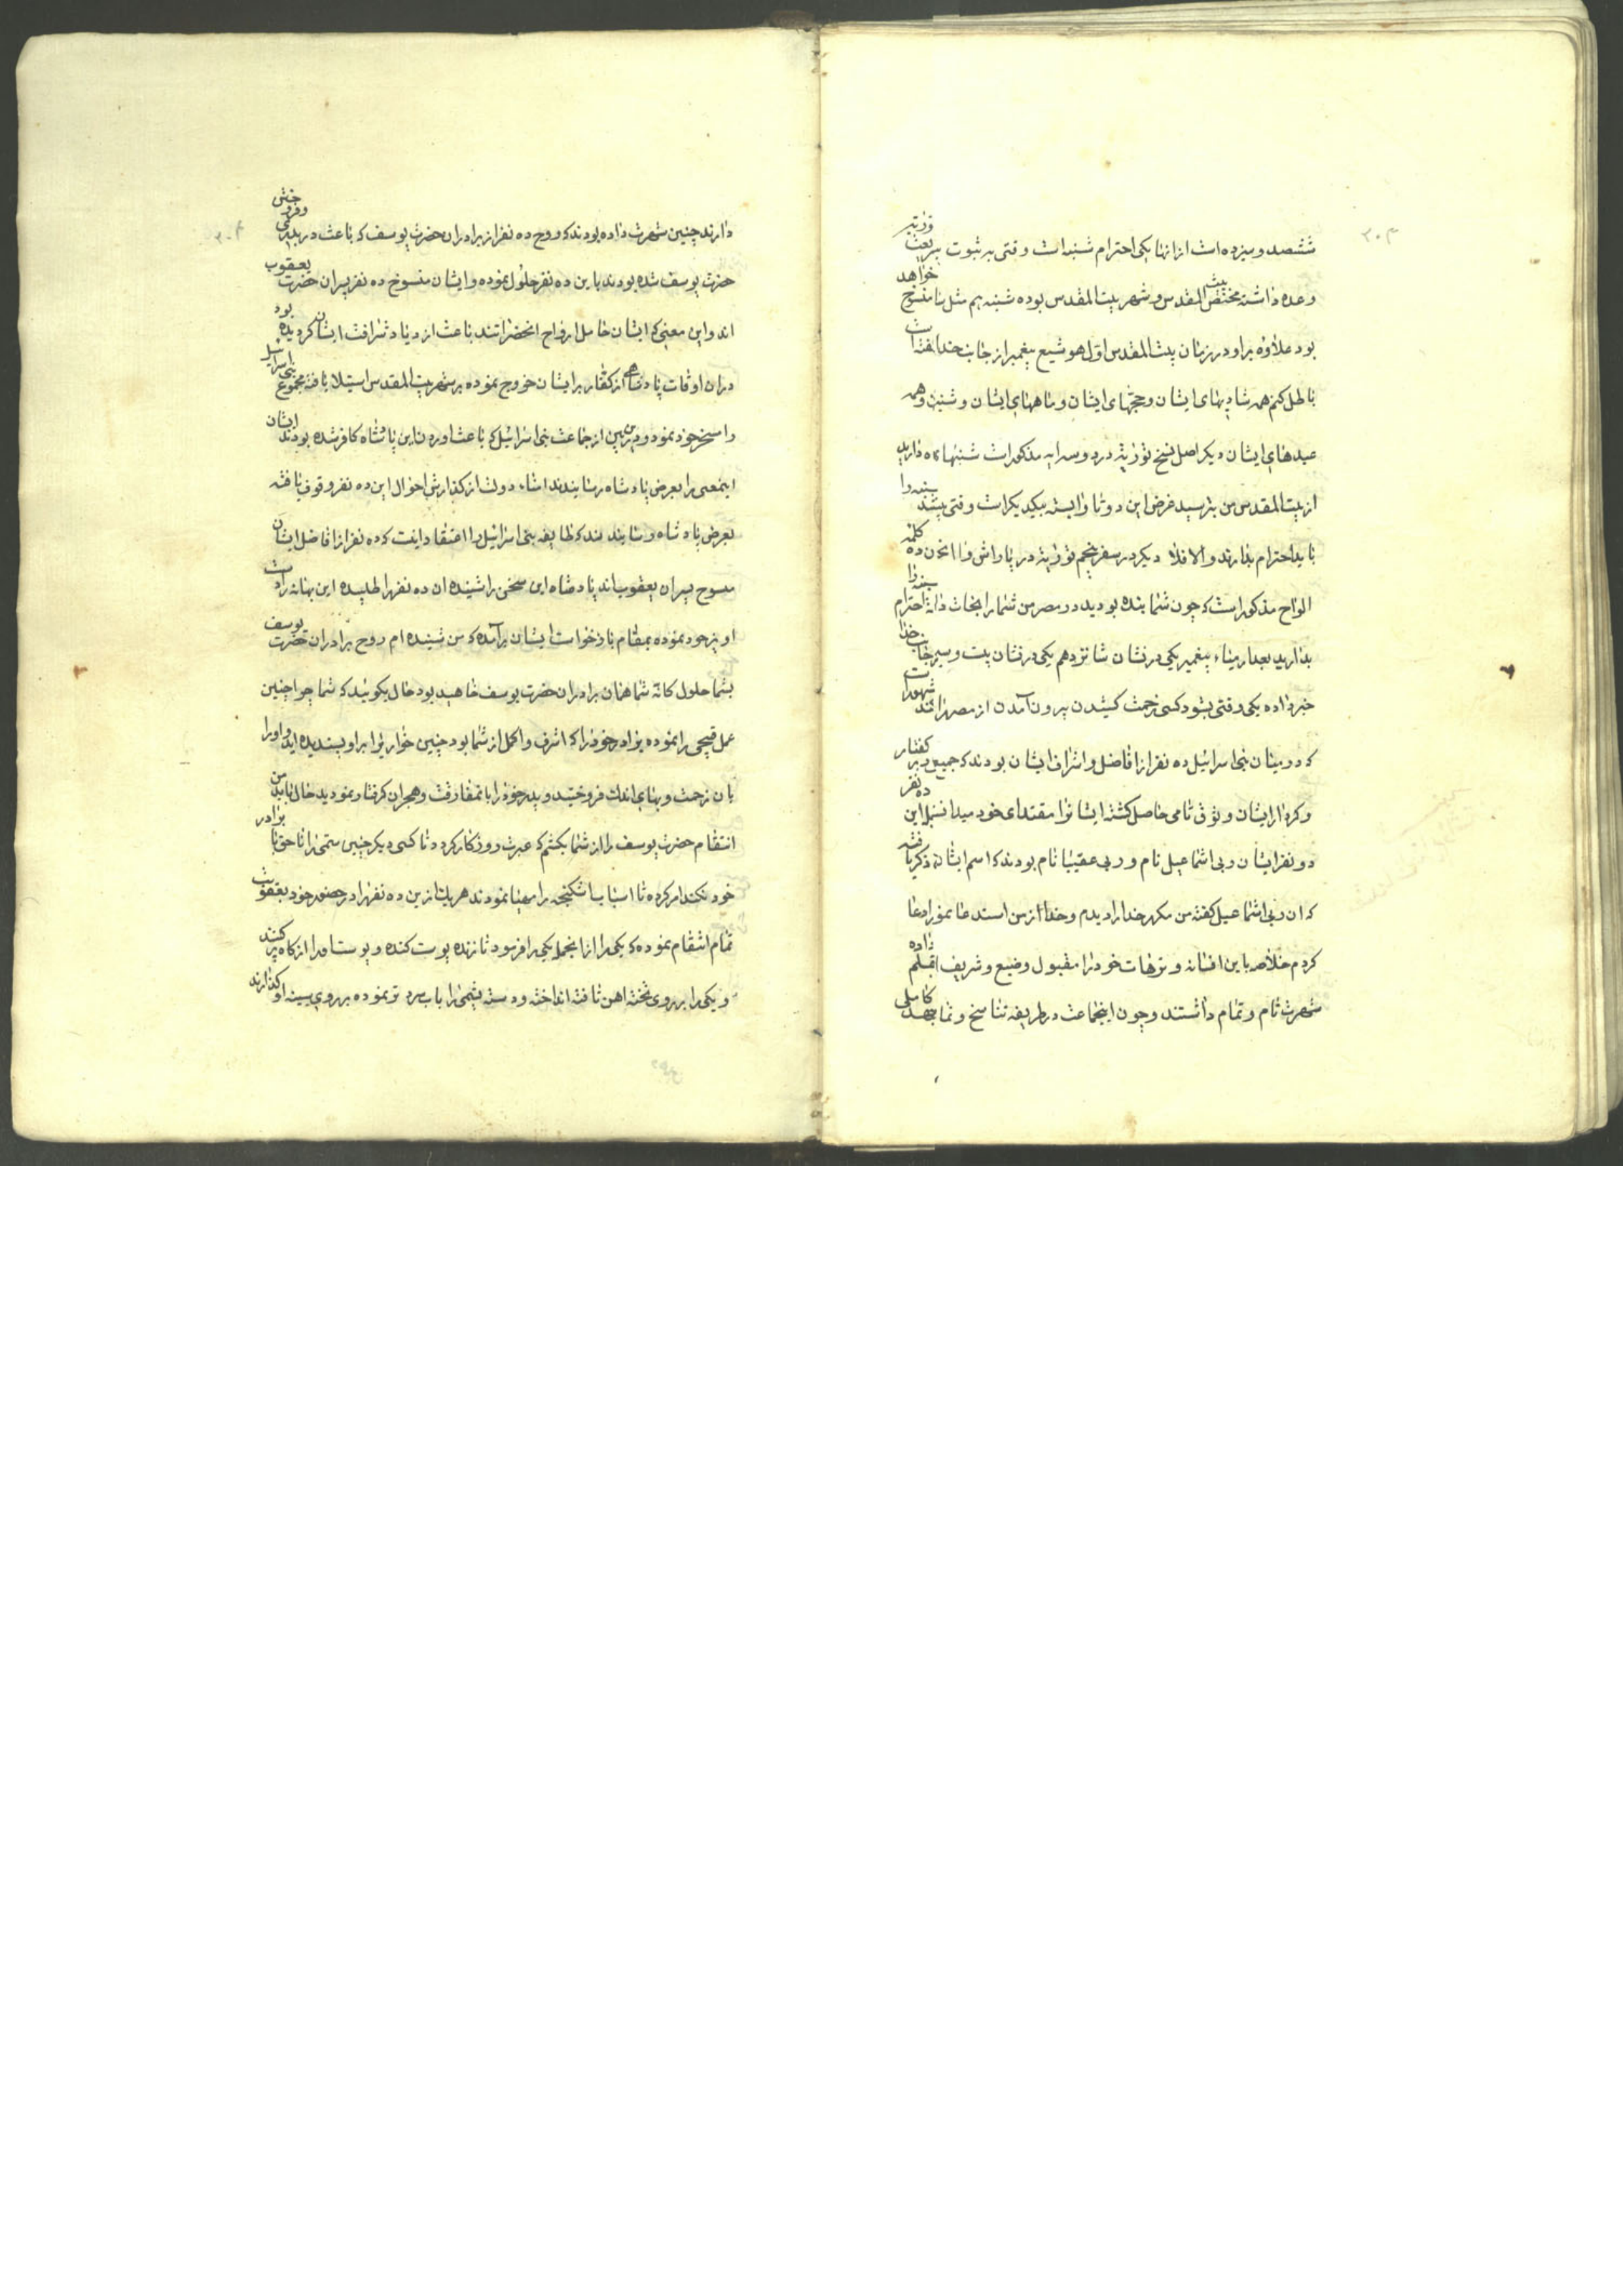 ۳۰۳
ششصد و سیزده است از انها یکی احترام شنبه است وقتی بر ثبوت شریعت توریة
وعده داشته مختص بیت المقدس و شهر بیت المقدس بوده شنبه هم مثل ما منسوخ خواهد
بود علاوه بر او در زمان بیت المقدس اول هوشیع پیغمبر از جانب خدا گفته است
باطل کنم همه شادیهای ایشان و حجهای ایشان و ماههای ایشان و شنبه و همه
عیدهای ایشان دیگر اصل نسخ توریة در دو سه ایه مذکور است شنبها نگاه دارید
از بیت المقدس من بترسید غرض این دو تا وابسته بیکدیگر است وقتی شنبه را
باید احترام بدارند والا فلا دیگر در سفر پنجم توریة در پاراش وااتحنن ده کلمه
الواح مذکور است که چون شما بنده بودید در مصر من شما را نجات دادم شنبه را احترام
بدارید بعد ارمیاء پیغمبر یکی در نشان شانزدهم یکی در نشان بیست و سیم از جانب خدا
خبر داده یکی وقتی بشود کسی زحمت کشیدن بیرون آمدن از مصر را شهرت
که در میان بنی اسرائیل ده نفر از افاضل و اشراف ایشان بودند که جمیع را بر گفتار
و کردار ایشان وثوق تامی حاصل گشته ایشانرا مقتدای خود میدانستند این ده نفر
دو نفر ایشان ربی اشماعیل نام و ربی عقیبا نام بودند که اسم ایشان ذکر یافته
که ان ربی اشماعیل گفته من مکرر خدا را دیدم و خدا از من استدعا نمود دعا
کردم خلاصه باین افسانه و ترهات خود را مقبول وضیع و شریف قلم داده
شهرت تام و تمام داشتند و چون اینجماعت در طریقه تناسخ و تماسخ جهد کاملی
۳۰۴
دارند چنین شهرت داده بودند که روح ده نفر از برادران حضرت یوسف که باعث دربدری و فروختن
حضرت یوسف شده بودند باین ده نفر حلول نموده و ایشان منسوخ ده نفر پسران حضرت یعقوب
اند و این معنی که ایشان حامل ارواح انحضراتند باعث ازدیاد شرافت ایشان گردیده بود
در ان اوقات پادشاهی از کفار بر ایشان خروج نموده بر شهر بیت المقدس استیلا یافته مجموع بنی اسرائیل
را مسخر خود نموده و در این بین از جماعت بنی اسرائیل که باعث اوردن این پادشاه کافر شده بودند ایشان
اینمعنی را بعرض پادشاه رسانیدند امناء دولت از گذارش احوال این ده نفر وقوف یافته
بعرض پادشاه رسانیدند که طایفه بنی اسرائیل را اعتقاد اینست که ده نفر از افاضل ایشان
منسوخ پسران یعقوب اند پادشاه این سخن را شنیده ان ده نفر را طلبیده این بهانه را دست
اویز خود نموده بمقام بازخواست ایشان برآمده که من شنیده ام روح برادران حضرت یوسف
بشما حلول کانه شما همان برادران حضرت یوسف خواهید بود حال بگوئید که شما چرا چنین
عمل قبیحی را نموده برادر خود را که اشرف و اکمل از شما بود چنین خواریرا بر او پسندیده اید و او را
بان زحمت و بهای اندک فروختید و پدر خود را بانمفارقت و هجران گرفتار نمودید حال باید من
انتقام حضرت یوسف را از شما بکشم که عبرت روزگار گردد تا کسی دیگر چنین ستمی را ناحق با برادر
خود نکند امر کرده تا اسباب شکنجه را مهیا نمودند هر یک از این ده نفر را در حضور خود بعقوبت
تمام انتقام نموده که یکی را از انجمله یکی را فرمود تا زنده پوست کنده و پوست او را از کاه پر کنند
و یکی را بر روی تخته اهن تافته انداخته و دسته پشمی را باب سرد تر نموده بر روی سینه او گذارند